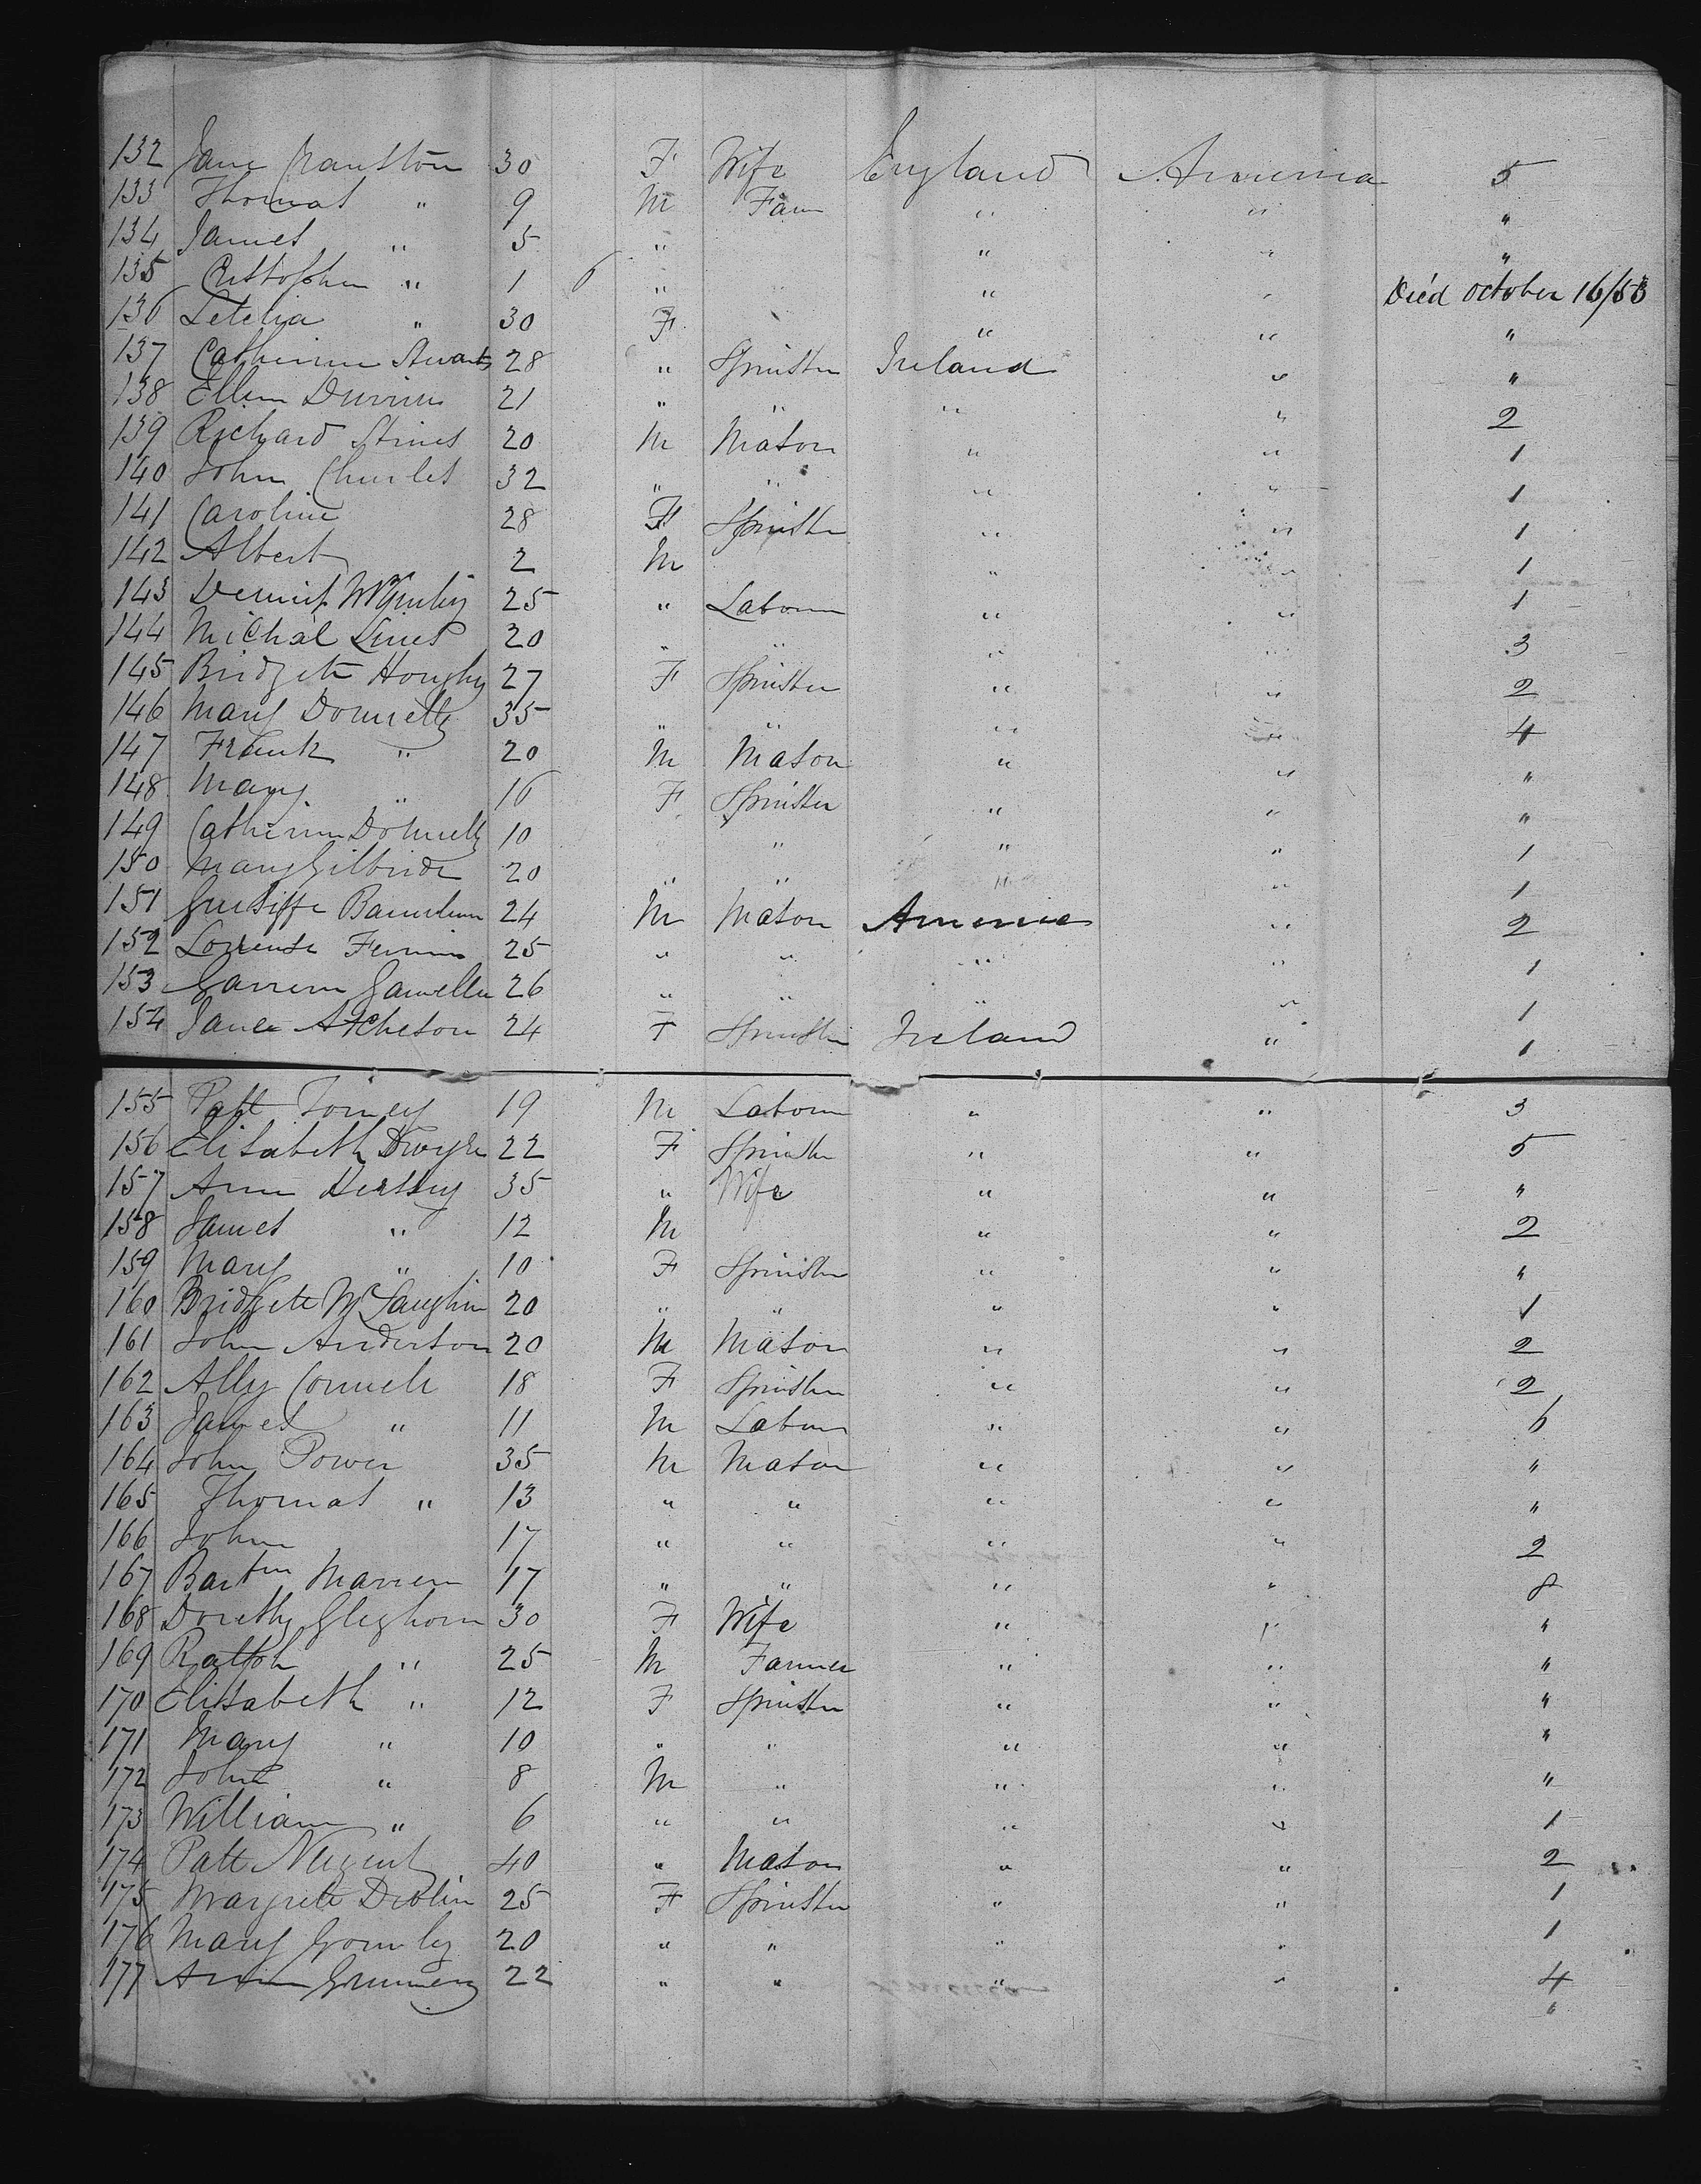 132 Jane Cranston 30 F Wife England America 5
133 Thomas " 9 M Farm " " "
134 James " 5 " " " "
135 Cristopher " 1 6 " " " Died October 16/53
136 Letetia " 30 F " " "
137 Catherine 28 " Spinster Ireland " "
138 Ellen 21 " " " " 2
139 Richard 20 M Mason " " 1
140 John Charles 32 " " " " 1
141 Caroline 28 F Spinster " " 1
142 Albert 2 M " " 1
143 25 " Laborer " " 1
144 Michal 20 " " " " 3
145 Bridgett 27 F Spinster " " 2
146 Mary Donnelly 35 " " " " 4
147 Frank " 20 M Mason " " "
148 Mary " 16 F Spinster " " "
149 Catherine Donnelly 10 " " " " 1
150 Mary Gilbride 20 " " " " 1
151 24 M Mason America " 2
152 25 " " " " 1
153 26 " " " " 1
154 Jane Atcheson 24 F Spinster Ireland " 1
155 Patt 19 M Laborer " " 3
156 Elisabeth Dwyer 22 F Spinster " " 5
157 Ann 35 " Wife " " "
158 James " 12 M " " 2
159 Mary " 10 F Spinster " " "
160 Bridgett McLaughin 20 " " " " 1
161 John Anderson 20 M Mason " " 2
162 Ally 18 F Spinster " " 2
163 James " 11 M Labour " " 6
164 John Power 35 M Mason " " "
165 Thomas " 13 " " " " "
166 John 17 " " " " 2
167 17 " " " " 8
168 Dorethy Gleghorn 30 F Wife " " "
169 Ralph " 25 M Farmer " " "
170 Elisabeth " 12 F Spinster " " "
171 Mary " 10 " " " " "
172 John " 8 M " " " "
173 William " 6 " " " " 1
174 Patt Nugent 40 " Mason " " 2
175 Margrett 25 F Spinster " " 1
176 Mary Gormley 20 " " " " 1
177 22 " " " " 4
"